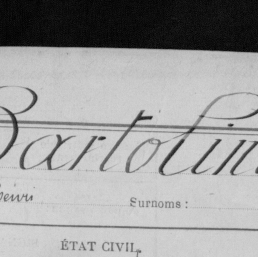 Bartolin
Henri Surnoms :
ÉTAT CIVIL,